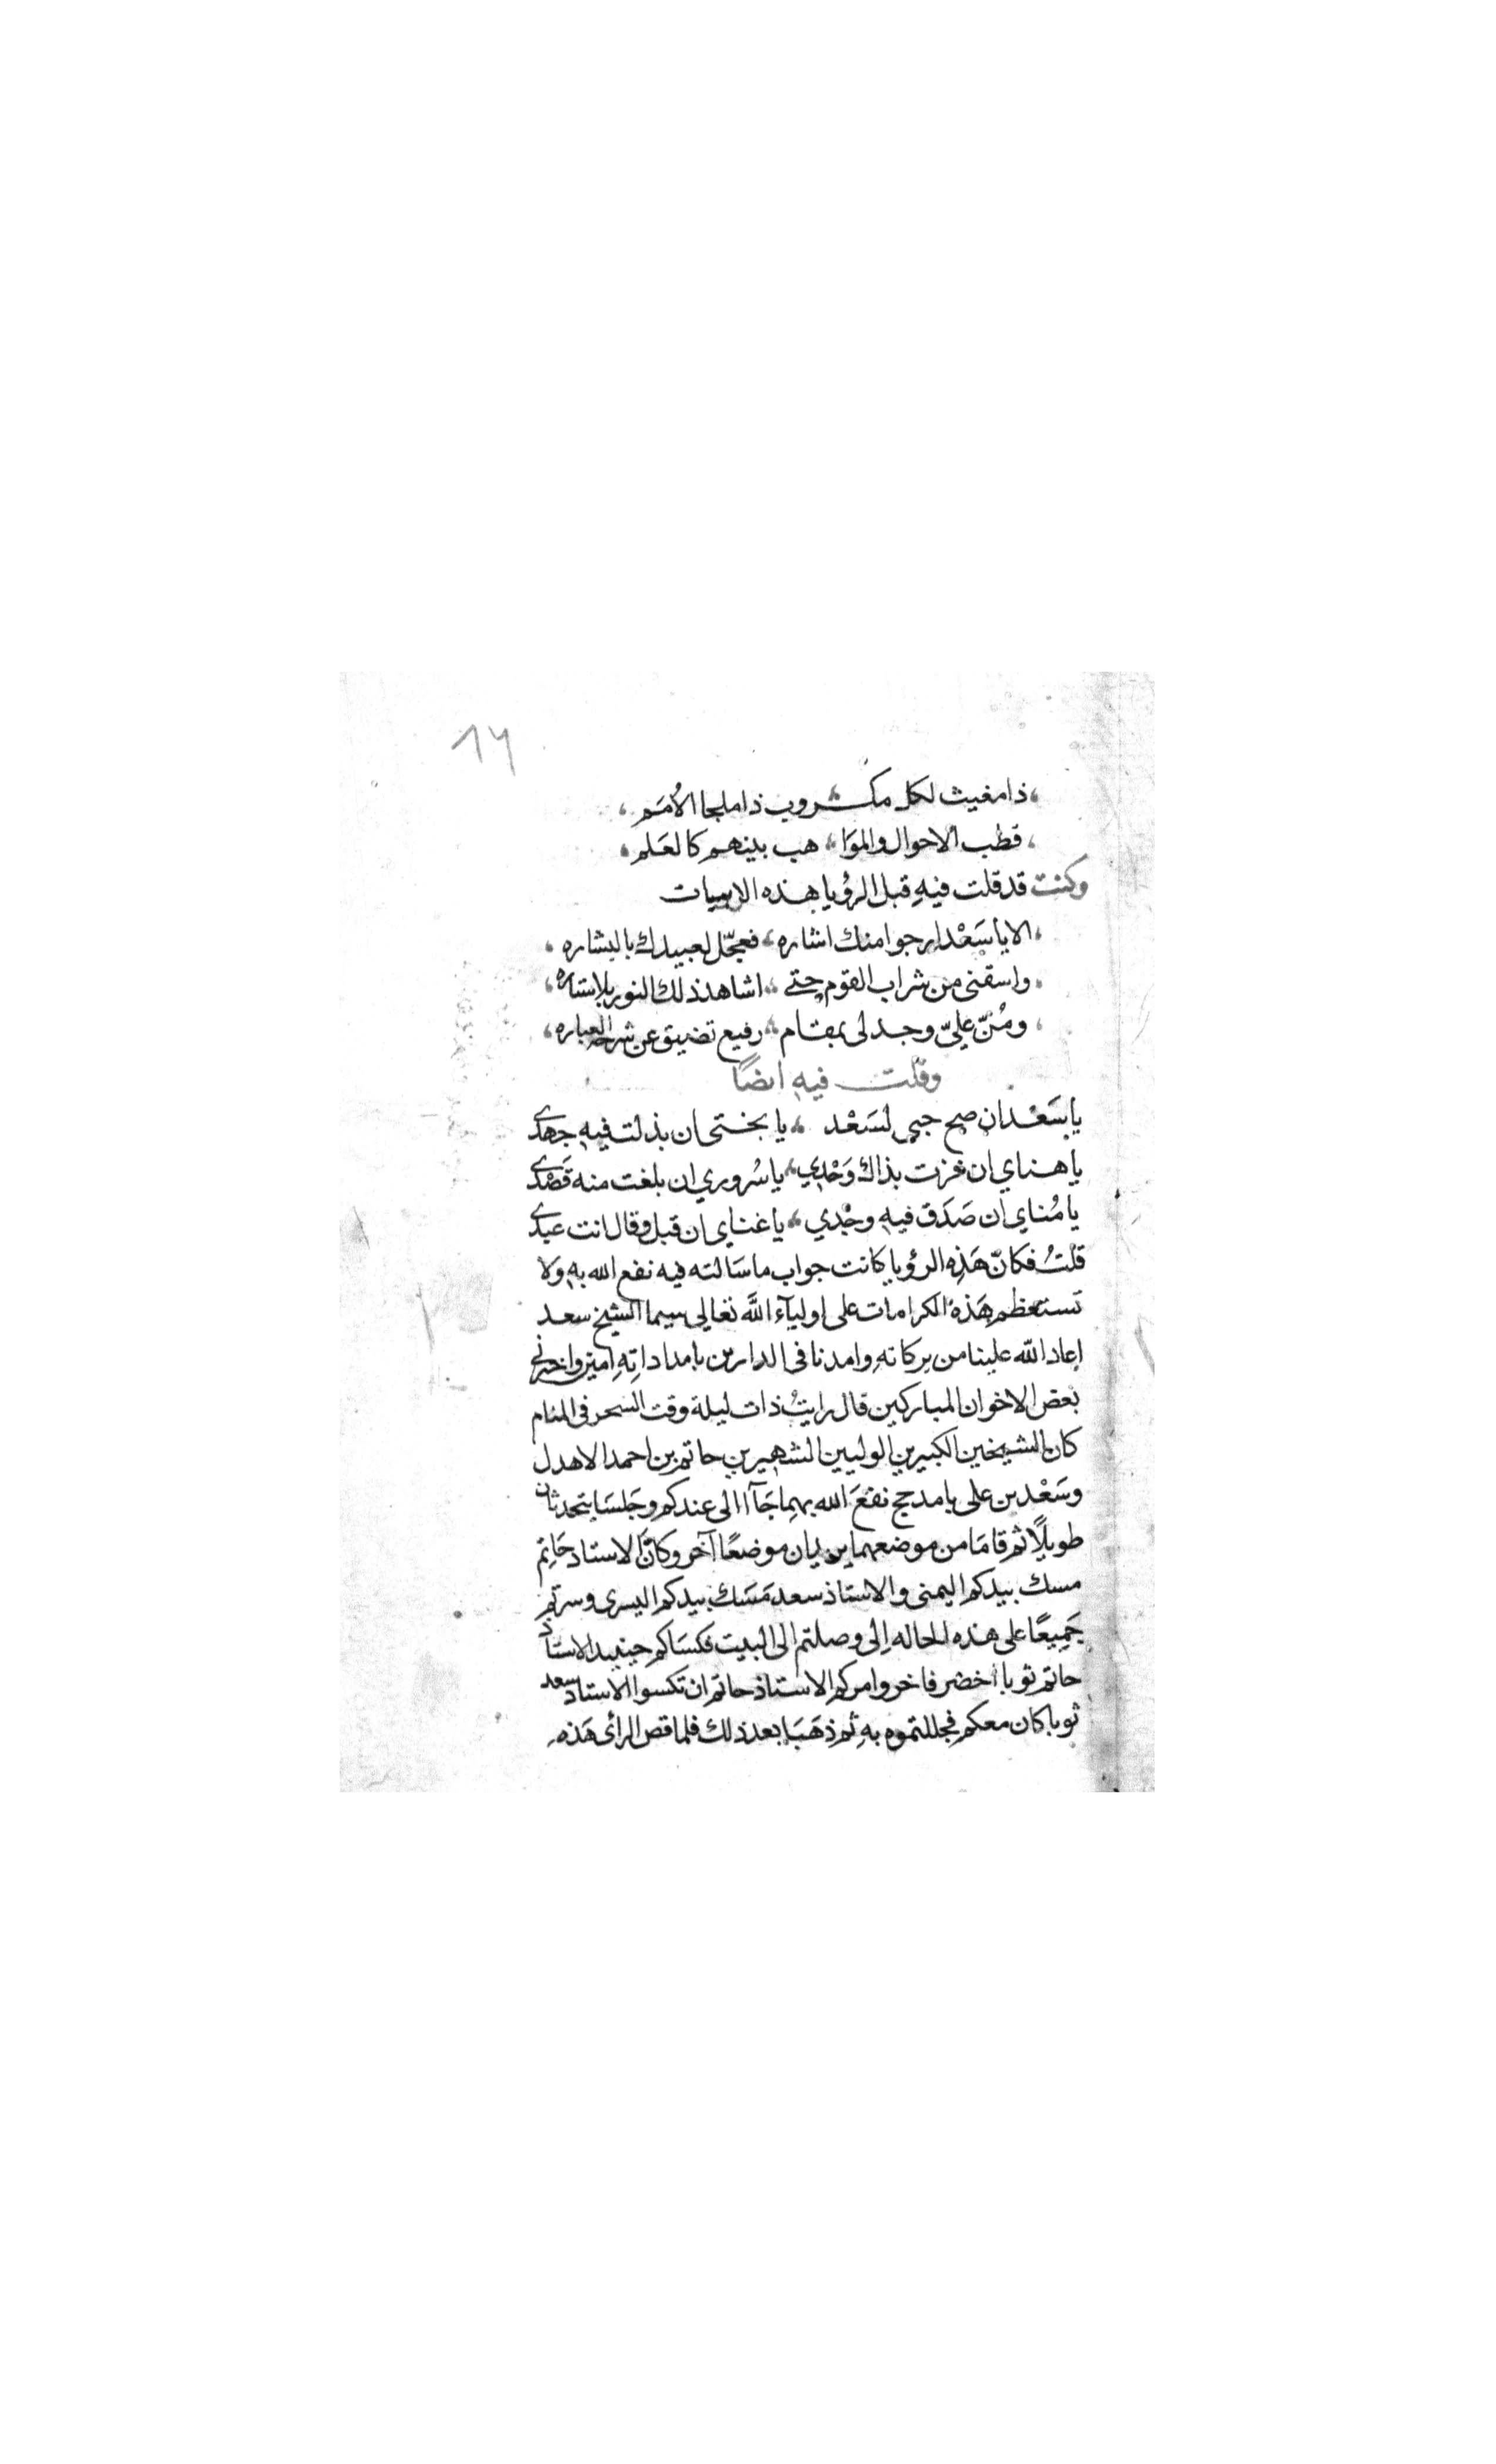 ١٧
ذا مغيث لكل مكروب ذا ملجا الاُمَم
قطب الاحوال والموَا هب بينهم كالعَلم
وكنت قد قلت فيهِ قبل الرؤيا هذه الابيات
الا يا سَعْد ارجوا منك اشاره فعجّل لعبيدك بالبشاره
واسقنى من شراب القوم حتى اشاهد ذلك النور بلا ستاره
ومُنّ عليّ وجد لى بمقام رفيع تضيق عن شرحه العباره
وقلت فيهِ ايضًا
يا سَعْد ان صح حبى لسَعْد يا بختى ان بذلت فيهِ جهدى
يا هناي ان فزت بذاك وَحْدِي يا سُروري ان بلغت منه قَصْدى
يا مُناي ان صَدَق فيهِ وجْدي يا غناي ان قبل وقال انت عبدى
قلْتُ فكانّ هَذِه الرؤيا كانت جواب ما سَالته فيه نفع الله بهِ ولا
تستعظم هَذهِ الكرامات على اوليآء اللَّه تعالى سيما الشيخ سعد
اعاد الله علينا من بركاتهِ وامدنا فى الدارين بامداداتِهِ امين واخبرنى
بعض الاخوان المباركين قال رايتُ ذات ليلة وقت السحر فى المنام
كان الشيخين الكبيرين الوليين الشهيرين حاتم بن احمد الاهدل
وسَعْد بن على بامدحج نفعَ الله بهما جَآا الى عندكم وجَلسَا يتحدثان
طويلًا ثم قامَا من موضعهما يريدان موضعًا آخر وكانّ الاستاد حَاتِم
مسك بيدكم اليمنى والاستاذ سعد مَسَك بيدكم اليسرى وسرتم
جَمِيعًا على هذه الحاله اِلى وصلتم الى البيت فكسَاكم حينيد الاستاذ
حاتم ثوبا اخضر فاخر وامركم الاستاذ حاتم ان تكسوا الاستاذ سعد
ثوبا كان معكم فجللتموه بهِ ثم ذهَبَا بعد ذلك فلما قص الرأى هَذه